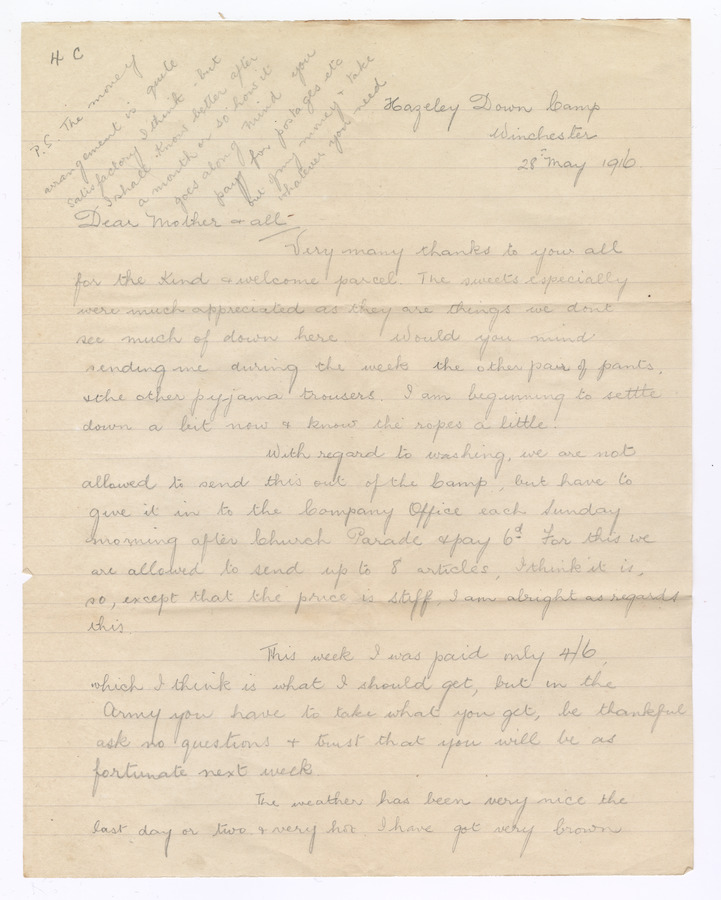 4 C
P.S. The money
arrangement is quite
satisfactory I think but
I shall know better after
a month or so how it
goes along. Mind you
pay for postages etc
out of my money & take
whatever you need
Hazeley Down Camp
Winchester
28th May 1916.
Dear Mother & all-
Very many thanks to your all
for the kind & welcome parcel. The sweets especially
were much appreciated as they are things we dont
see much of down here. Would you mind
sending me during the week the other pair of pants,
& the other pyjama trousers. I am beginning to settle
down a bit now & know the ropes a little.
With regard to washing, we are not
allowed to send this out of the Camp, but have to
give it in to the Company Office each Sunday
morning after Church Parade & pay 6d. For this we
are allowed to send up to 8 articles, I think it is,
so, except that the price is stiff, I am alright as regards
this.
This week I was paid only 4/6,
which I think is what I should get, but in the
Army you have to take what you get, be thankful
ask no questions & trust that you will be as
fortunate next week.
The weather has been very nice the
last day or two & very hot. I have got very brown